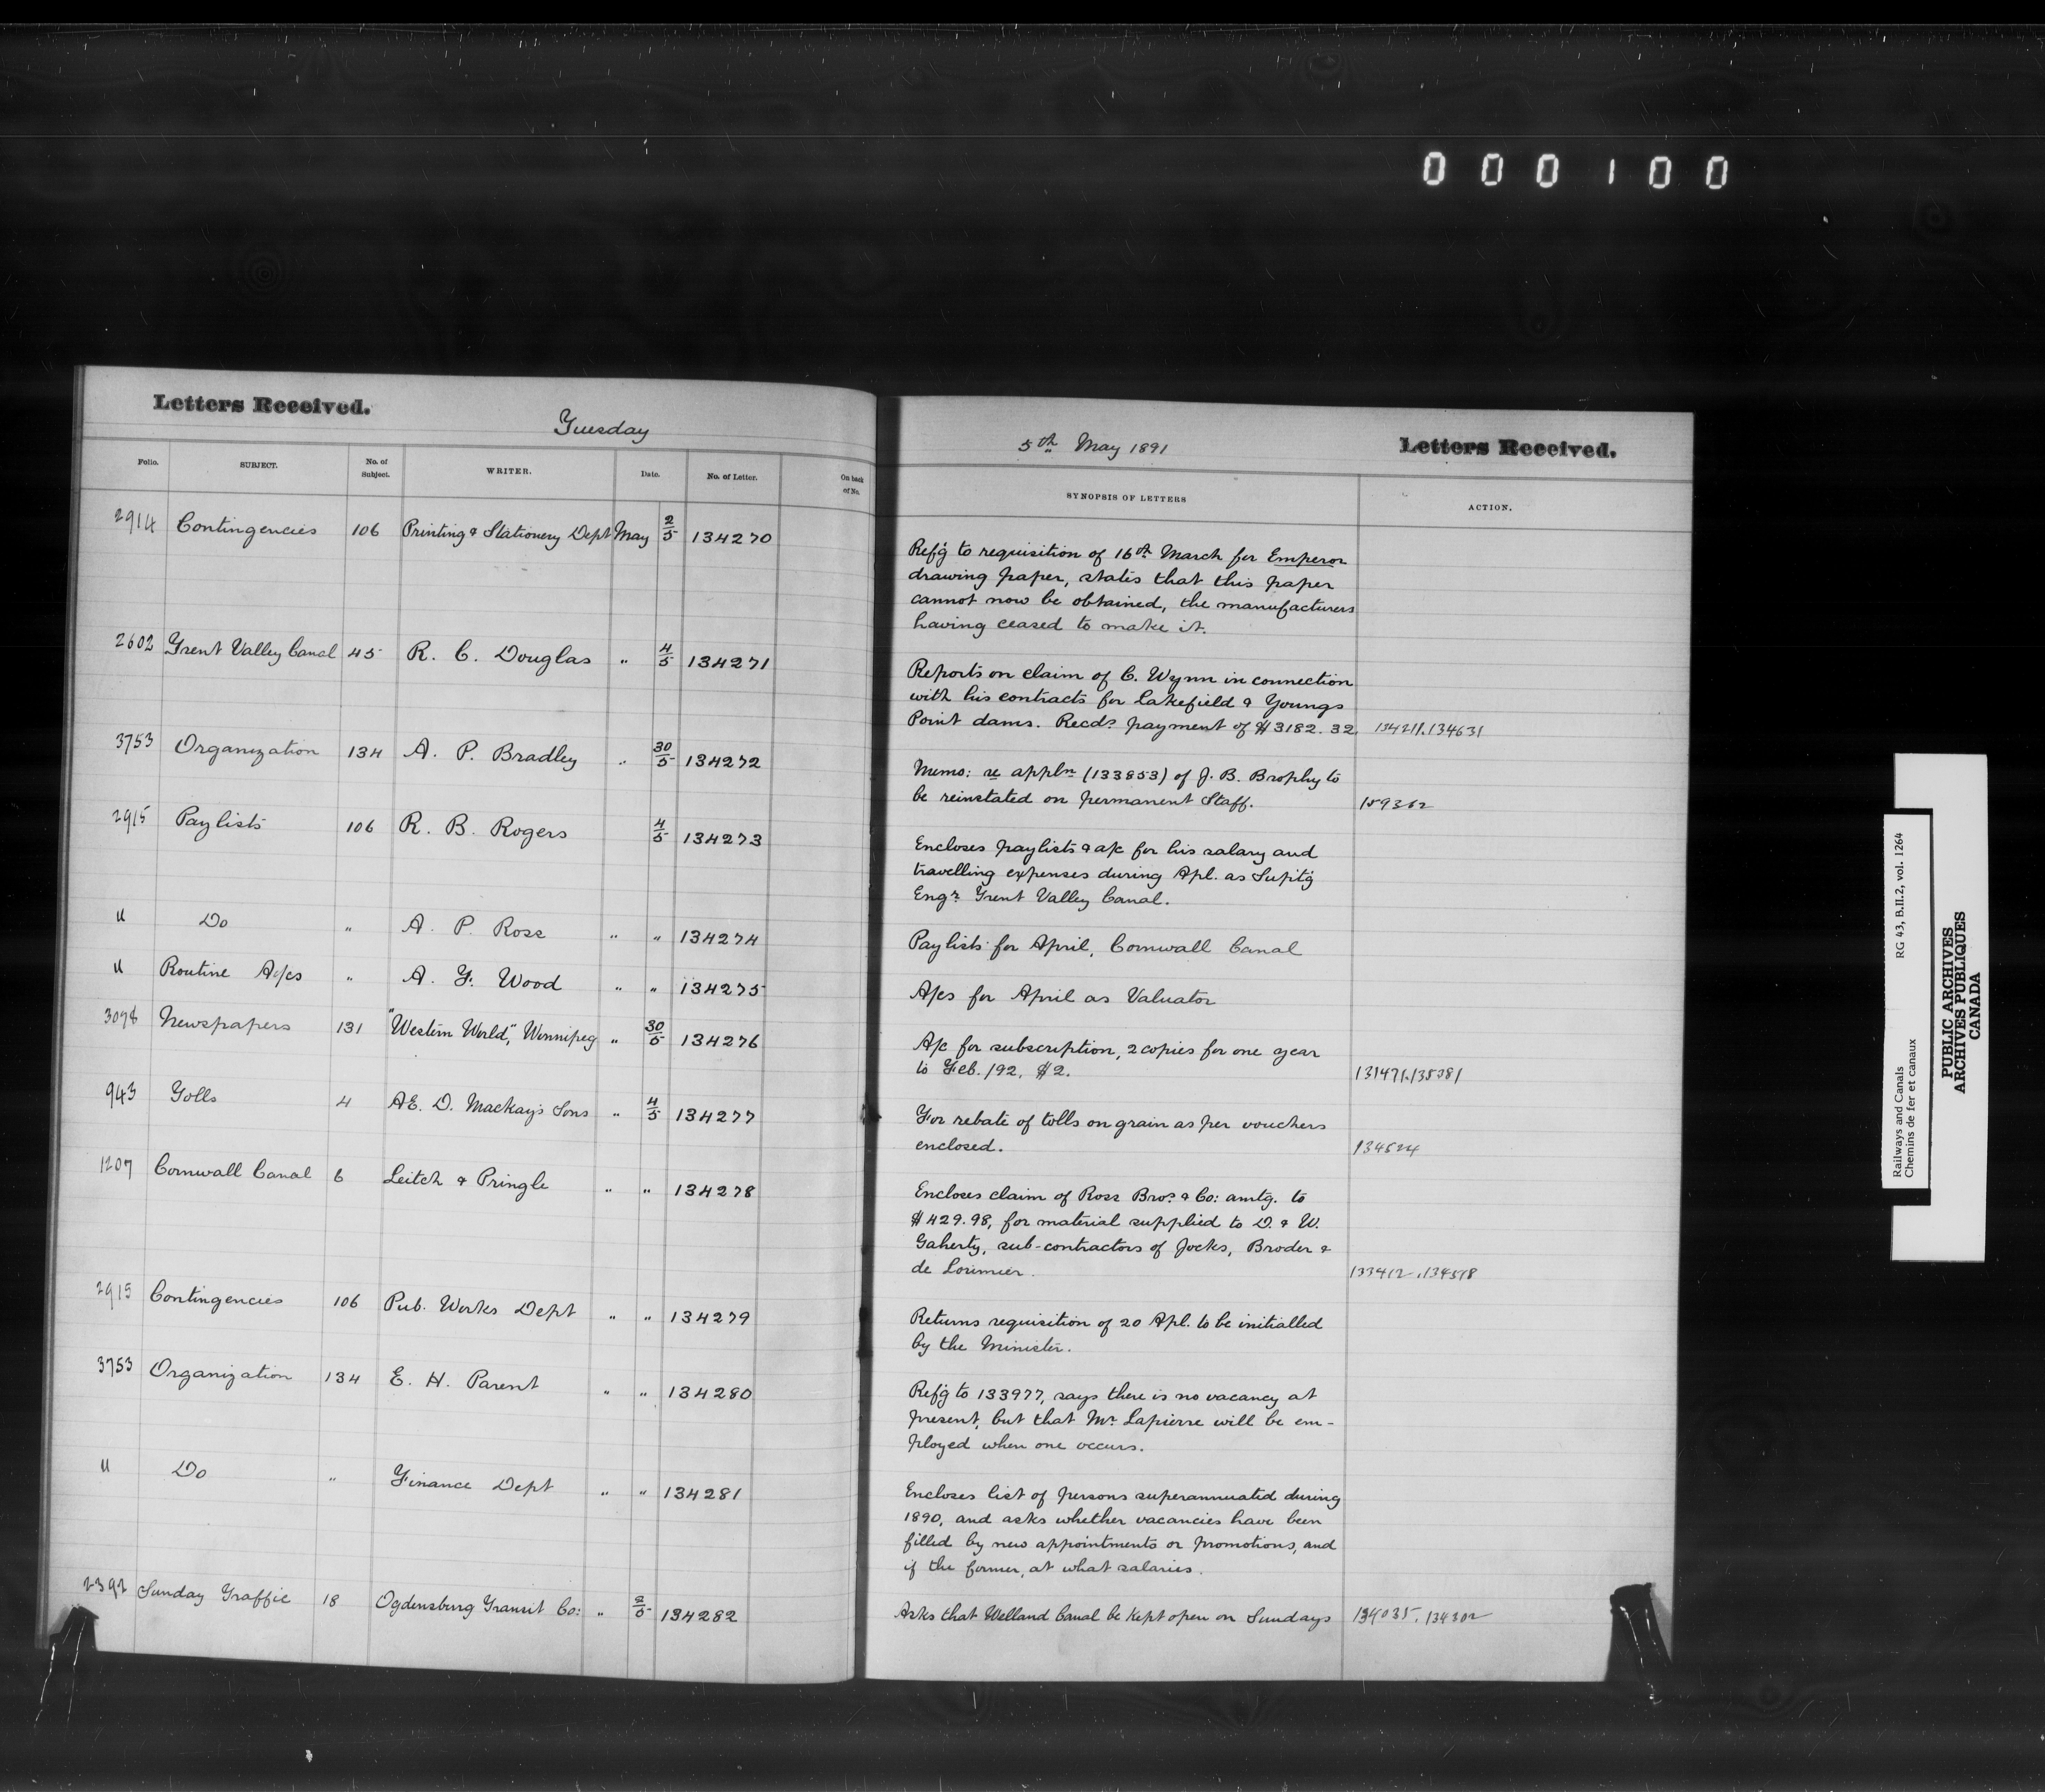 000100
Letters Received.
Tuesday
Folio. SUBJECT. No. of Subject. WRITER. Date. No. of Letter. On back of No.
2914 Contingencies 106 Printing & Stationery Dept May 2/5 134270
2602 Trent Valley Canal 45 R. C. Douglas " 4/5 134271
3753 Organization 134 A. P. Bradley " 30/5 134272
2915 Paylists 106 R. B. Rogers 4/5 134273
" Do " A. P. Ross " " 134274
" Routine A/cs " A. F. Wood " " 134275
3098 Newspapers 131 "Western World", Winnipeg " 30/5 134276
943 Tolls 4 AE. D. Mackay's Sons " 4/5 134277
1207 Cornwall Canal 6 Leitch & Pringle " " 134278
2915 Contingencies 106 Pub. Works Dept " " 134279
3753 Organization 134 E. H. Parent " " 134280
" Do " Finance Dept " " 134281
2392 Sunday Traffic 18 Ogdensburg Transit Co: " 2/5 134282
5th May 1891
Letters Received.
SYNOPSIS OF LETTERS ACTION.
Ref'g to requisition of 16th March for Emperor
drawing paper, states that this paper
cannot now be obtained, the manufacturers
having ceased to make it.
Reports on claim of C. Wynn in connection
with his contracts for Lakefield & Youngs
Point dams. Recds. payment of $3182.32. 134211.134631
Memo: re appln (133853) of J. B. Brophy to
be reinstated on permanent Staff. 159362
Encloses paylists & a/c for his salary and
travelling expenses during Apl. as Supt'g
Engr. Trent Valley Canal.
Paylists for April, Cornwall Canal
A/cs for April as Valuator
A/c for subscription, 2 copies for one year
to Feb. /92, $2. 131471.135381
For rebate of tolls on grain as per vouchers
enclosed. 134524
Encloses claim of Ross Bros. & Co: amtg. to
$429.98, for material supplied to D. & W.
Gaherty, sub-contractors of Jocks, Broder &
de Lorimier. 133412.134598
Returns requisition of 20 Apl. to be initialled
by the Minister.
Ref'g to 133977, says there is no vacancy at
present, but that Mr. Lapierre will be em-
ployed when one occurs.
Encloses list of persons superannuated during
1890, and asks whether vacancies have been
filled by new appointments or promotions, and
if the former, at what salaries.
Asks that Welland Canal be kept open on Sundays 134035.134302
Railways and Canals RG 43, B.II.2, vol. 1264
Chemins de fer et canaux
PUBLIC ARCHIVES
ARCHIVES PUBLIQUES
CANADA